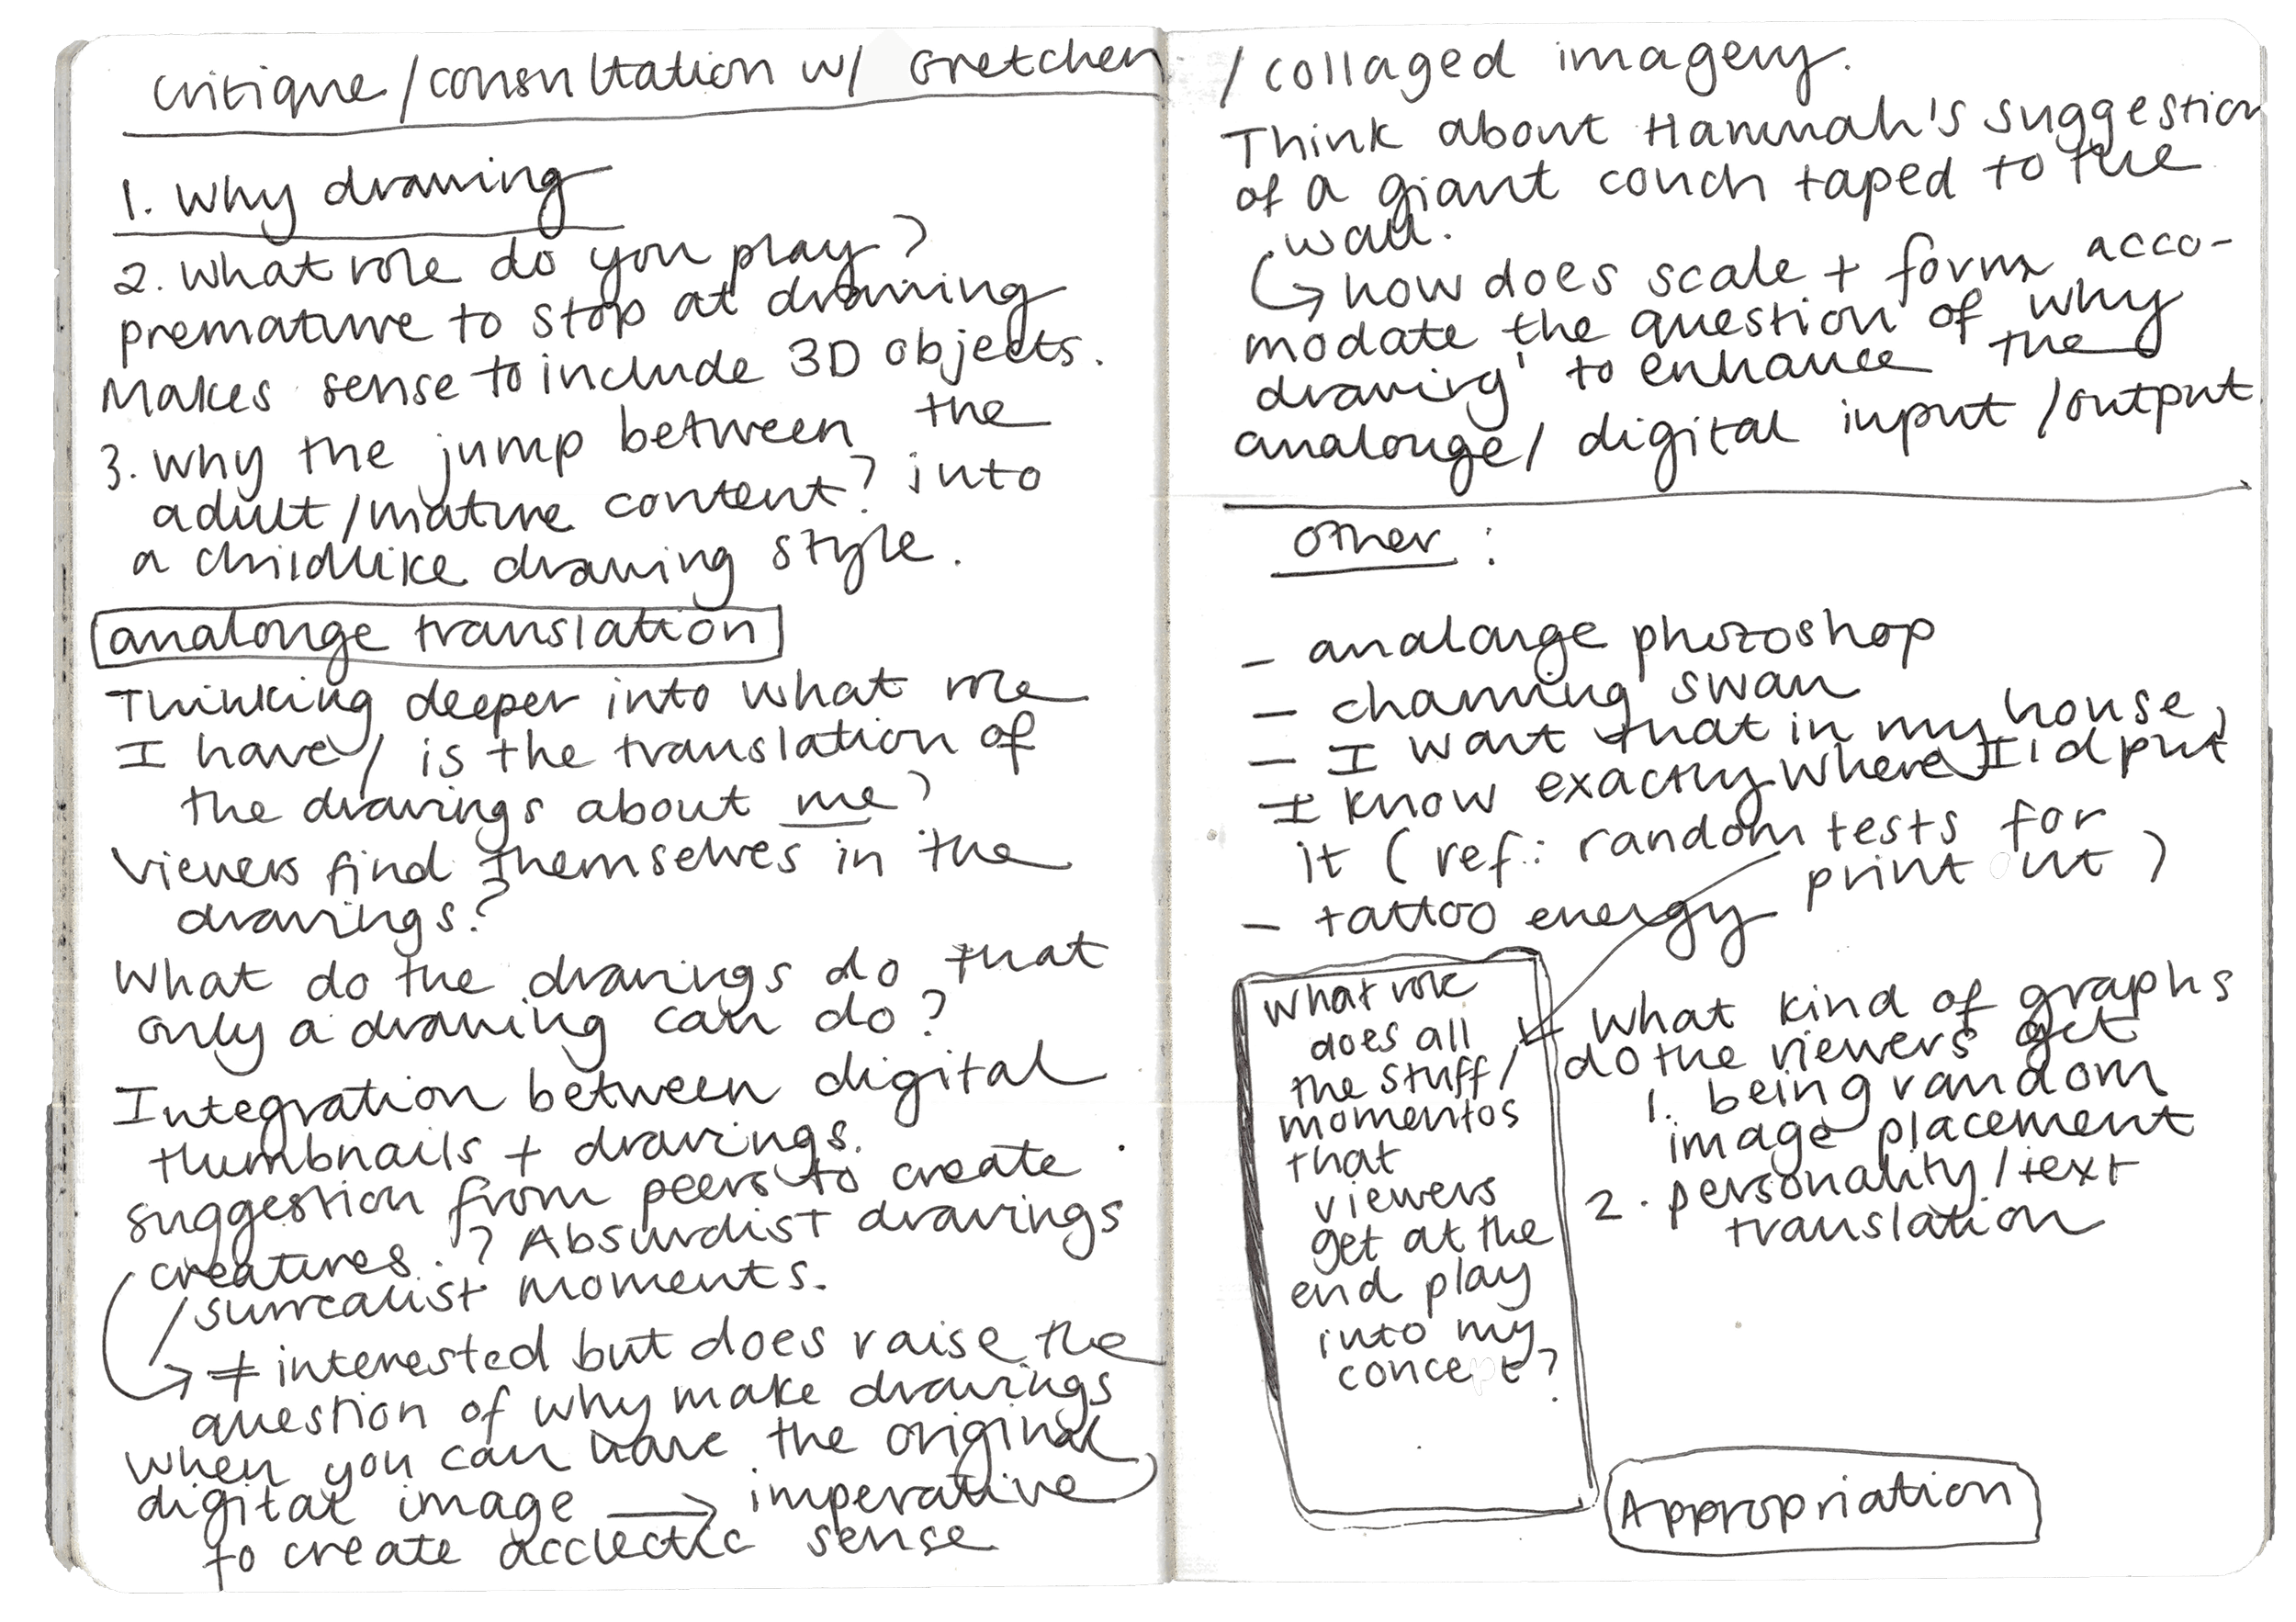 critique/consultation w/ Gretchen
1. Why drawing
2. What role do you play?
premature to stop at drawing
Makes sense to include 3D objects.
3. Why the jump between the
adult/mature content? into
a childlike drawing style.
analouge translation
Thinking deeper into what role
I have / is the translation of
the drawings about me?
Viewers find themselves in the
drawings?
What do the drawings do that
only a drawing can do?
Integration between digital
thumbnails + drawings.
suggestion from peers to create
creatures.? Absurdist drawings
/surrealist moments.
→ interested but does raise the
question of why make drawings
when you can have the original
digital image → imperative
to create acclectic sense
/collaged imagery.
Think about Hannah's suggestion
of a giant couch taped to the
wall.
↳ how does scale + form acco-
modate the question of 'why
drawing' to enhance the
analouge/digital input/output
other:
- analouge photoshop
- channing swan
- I want that in my house,
I know exactly where I'd put
it (ref: random tests for
print out)
- tattoo energy
What role
does all
the stuff/
momentos
that
viewers
get at the
end play
into my
concept?
What kind of graphs
do the viewers get
1. being random
image placement
2. personality/text
translation
Appropriation